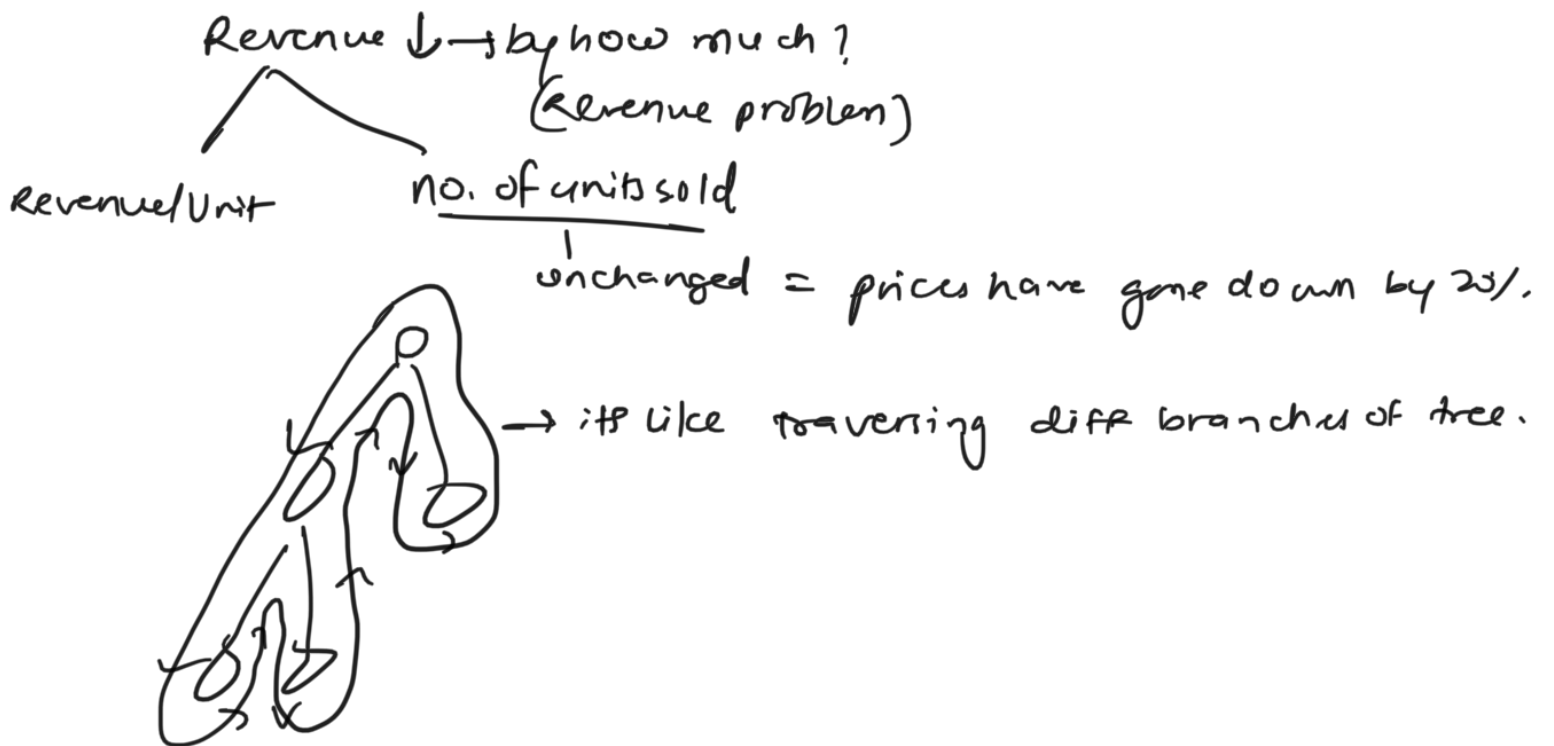 Revenue ↓ → by how much?
(Revenue problem)
Revenue/Unit
no. of units sold
unchanged = prices have gone down by 20%.
→ its like traversing diff branches of tree.